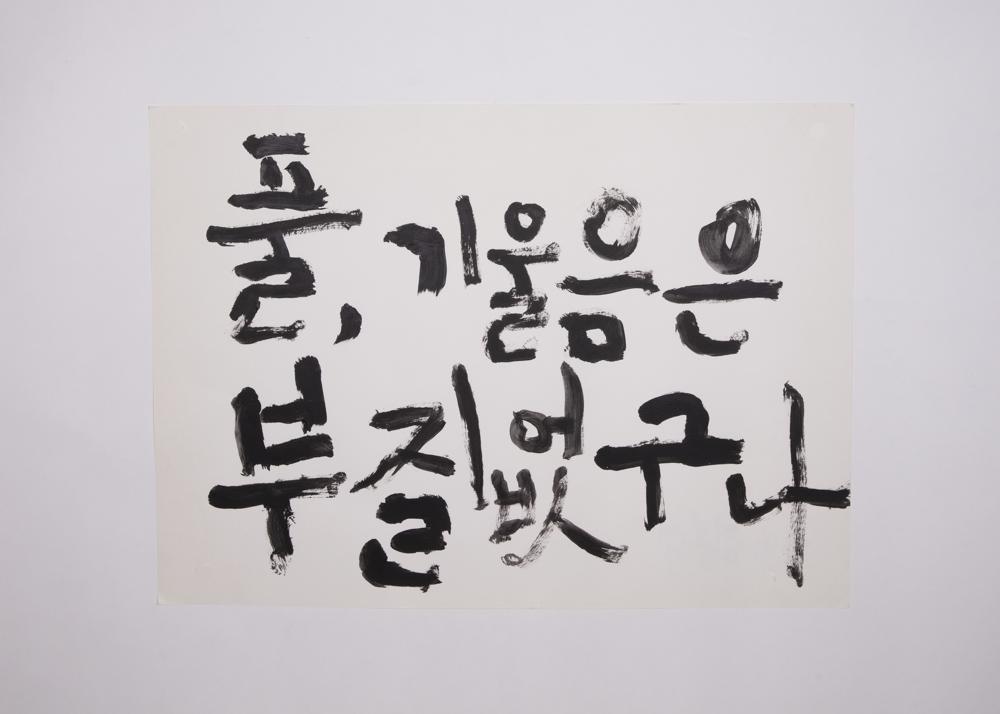 풀, 기울음은
부질없구나